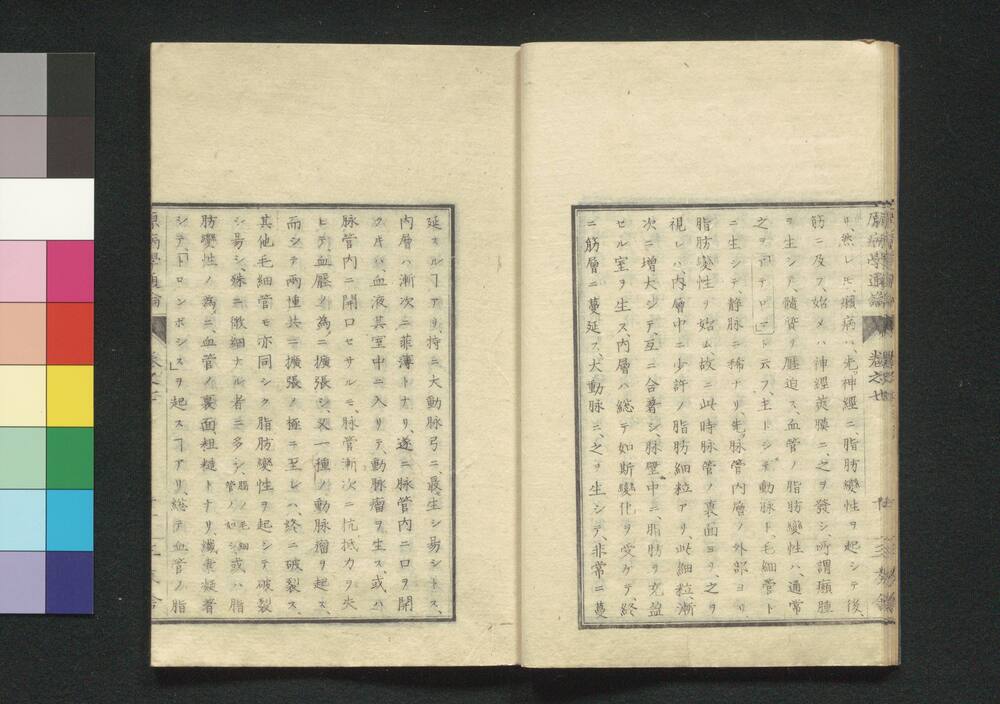 リ、然レモ、癩病ハ、先神經ニ脂肪變性ヲ起シテ後、
筋ニ及フ、始メハ神經莢膜ニ、之ヲ發シ、所謂癩腫
ヲ生シテ、髄質ヲ壓迫ス、血管ノ脂肪變性ハ、通常
之ヲ「アテロマ」ト云フ、主トシテ動脉ト、毛細管ト
ニ生シテ、静脉ニ稀ナリ、先脉管内層ノ外部ヨリ、
脂肪變性ヲ始ム故ニ此時脉管ノ裏面ヨリ、之ヲ
視レハ、内層中ニ少許ノ脂肪細粒アリ、此細粒、漸
次ニ増大シテ、互ニ合着シ脉壁中ニ、脂肪ヲ充盈
セル室ヲ生ス、内層ハ総テ如斯變化ヲ受ケテ、終
ニ筋層ニ蔓延ス、大動脉ニ、之ヲ生シテ、非常ニ蔓
延スルヿアリ、持ニ大動脉弓ニ、最生シ易シトス、
内層ハ漸次ニ菲薄トナリ、遂ニ脉管内ニ口ヲ開
ク片ハ、血液其室中ニ入リテ、動脉瘤ヲ生ス、或ハ
脉管内ニ開口セサルモ、脉管漸次ニ抗抵力ヲ失
ヒテ、血壓ノ為ニ擴張シ、又一種ノ動脉瘤ヲ起ス、
而シテ両種共ニ擴張ノ極ニ至レハ、終ニ破裂ス、
其他毛細管モ亦同シク脂肪變性ヲ起シテ破裂
シ易シ、殊ニ微細ナル者ニ多シ、腦ノ毛細管ノ如シ、或ハ脂
肪變性ノ為ニ、血管ノ裏面、粗糙トナリ、纎維凝着
シテ、「トロンボシス」ヲ起スヿアリ、総テ血管ノ脂